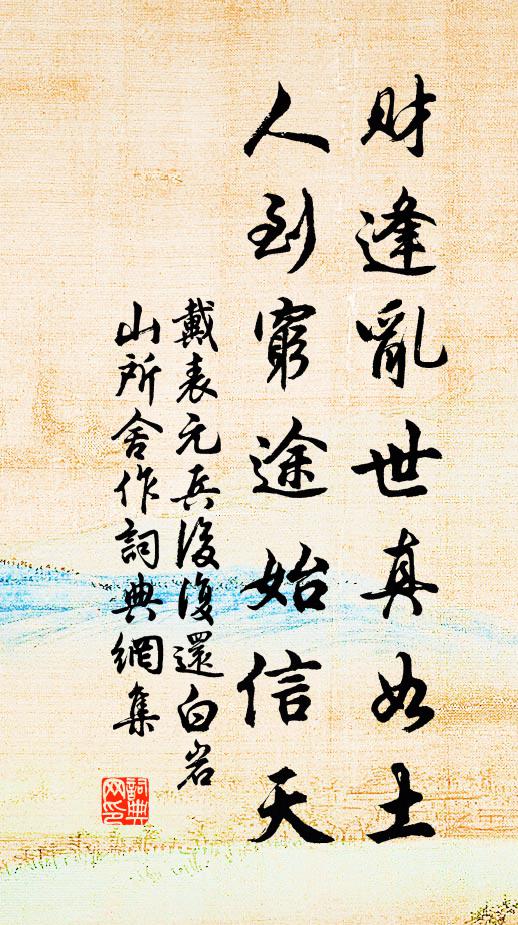 財逢亂世真如土
人到窮途始信天
戴表元兵後復還白岩
山所舍作詞典網集
詞典
网印